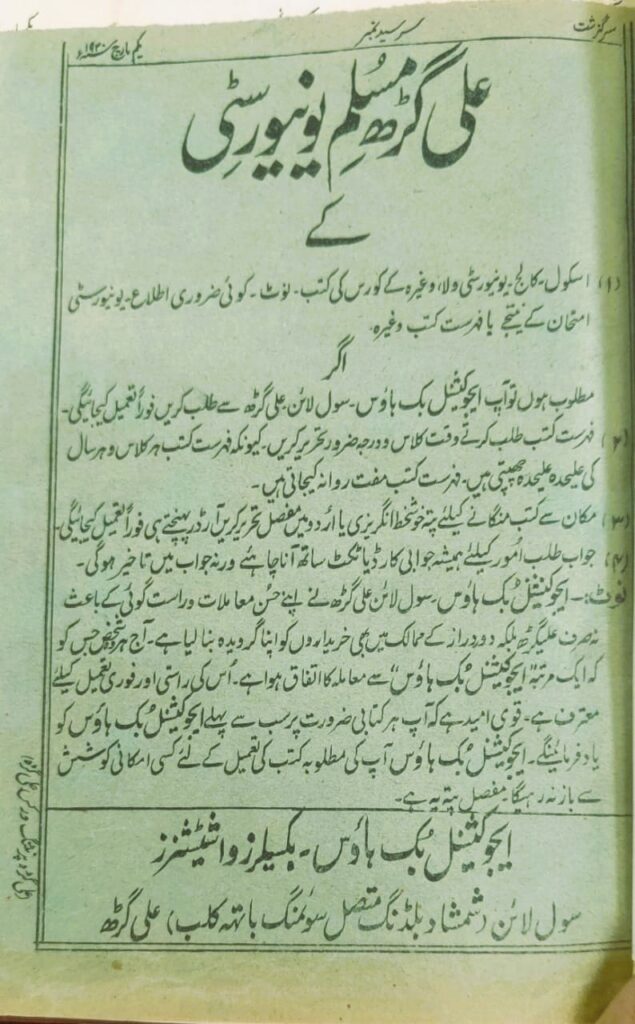 سرگزشت
سرسید نمبر
یکم مارچ ۱۹۳۰ء
علی گڑھ مسلم یونیورسٹی
کے
(۱) اسکول۔ کالج۔ یونیورسٹی ولاء وغیرہ کے کورس کی کتب۔ نوٹ۔ کوئی ضروری اطلاع۔ یونیورسٹی
امتحان کے نتیجے یا فہرست کتب وغیرہ
اگر
مطلوب ہوں تو آپ ایجوکیشنل بک ہاؤس۔ سول لائن علی گڑھ سے طلب کریں فوراً تعمیل کیجائیگی۔
(۲) فہرست کتب طلب کرتے وقت کلاس و درجہ ضرور تحریر کریں۔ کیونکہ فہرست کتب ہر کلاس و ہر سال
کی علیحدہ علیحدہ چھپتی ہیں۔ فہرست کتب مفت روانہ کیجاتی ہیں۔
(۳) مکان سے کتب منگانے کیلئے پتہ خوشخط انگریزی یا اردو میں مفصل تحریر کریں آرڈر پہنچتے ہی فوراً تعمیل کیجائیگی۔
(۴) جواب طلب اُمور کیلئے ہمیشہ جوابی کارڈ یا ٹکٹ ساتھ آنا چاہئے ورنہ جواب میں تاخیر ہوگی۔
نوٹ:۔ ایجوکیشنل بُک ہاؤس۔ سول لائن علی گڑھ نے اپنے حسن معاملات و راست گوئی کے باعث
نہ صرف علیگڑھ بلکہ دور دراز کے ممالک میں بھی خریداروں کو اپنا گرویدہ بنا لیا ہے۔ آج ہر شخص جس کو
کہ ایک مرتبہ "ایجوکیشنل بُک ہاؤس" سے معاملہ کا اتفاق ہوا ہے۔ اُس کی راستی اور فوری تعمیل کیلئے
معترف ہے۔ قوی امید ہے کہ آپ ہر کتابی ضرورت پر سب سے پہلے ایجوکیشنل بُک ہاؤس کو
یاد فرمائینگے۔ ایجوکیشنل بُک ہاؤس آپ کی مطلوبہ کتب کی تعمیل کے لئے کسی امکانی کوشش
سے باز نہ رہیگا۔ مفصل پتہ یہ ہے۔
ایجوکیشنل بُک ہاؤس۔ بکسیلرز و اسٹیشنرز
سول لائن (شمشاد بلڈنگ متصل سوئمنگ باتھ کلب) علی گڑھ